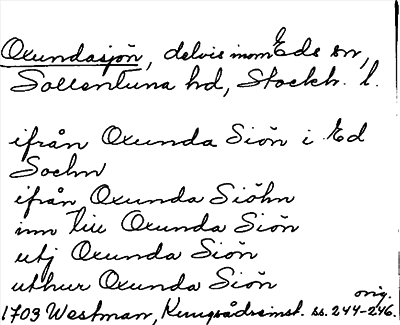 Oxundasjön, delvis inom Eds sn,
Sollentuna hd, Stockh. l.
ifrån Oxunda Siön i Ed
Sochn
ifrån Oxunda Siöhn
inn till Oxunda Siön
utj Oxunda Siön
uthur Oxunda Siön
orig.
1703 Westman, Kungsådreinst. ss. 244-246.